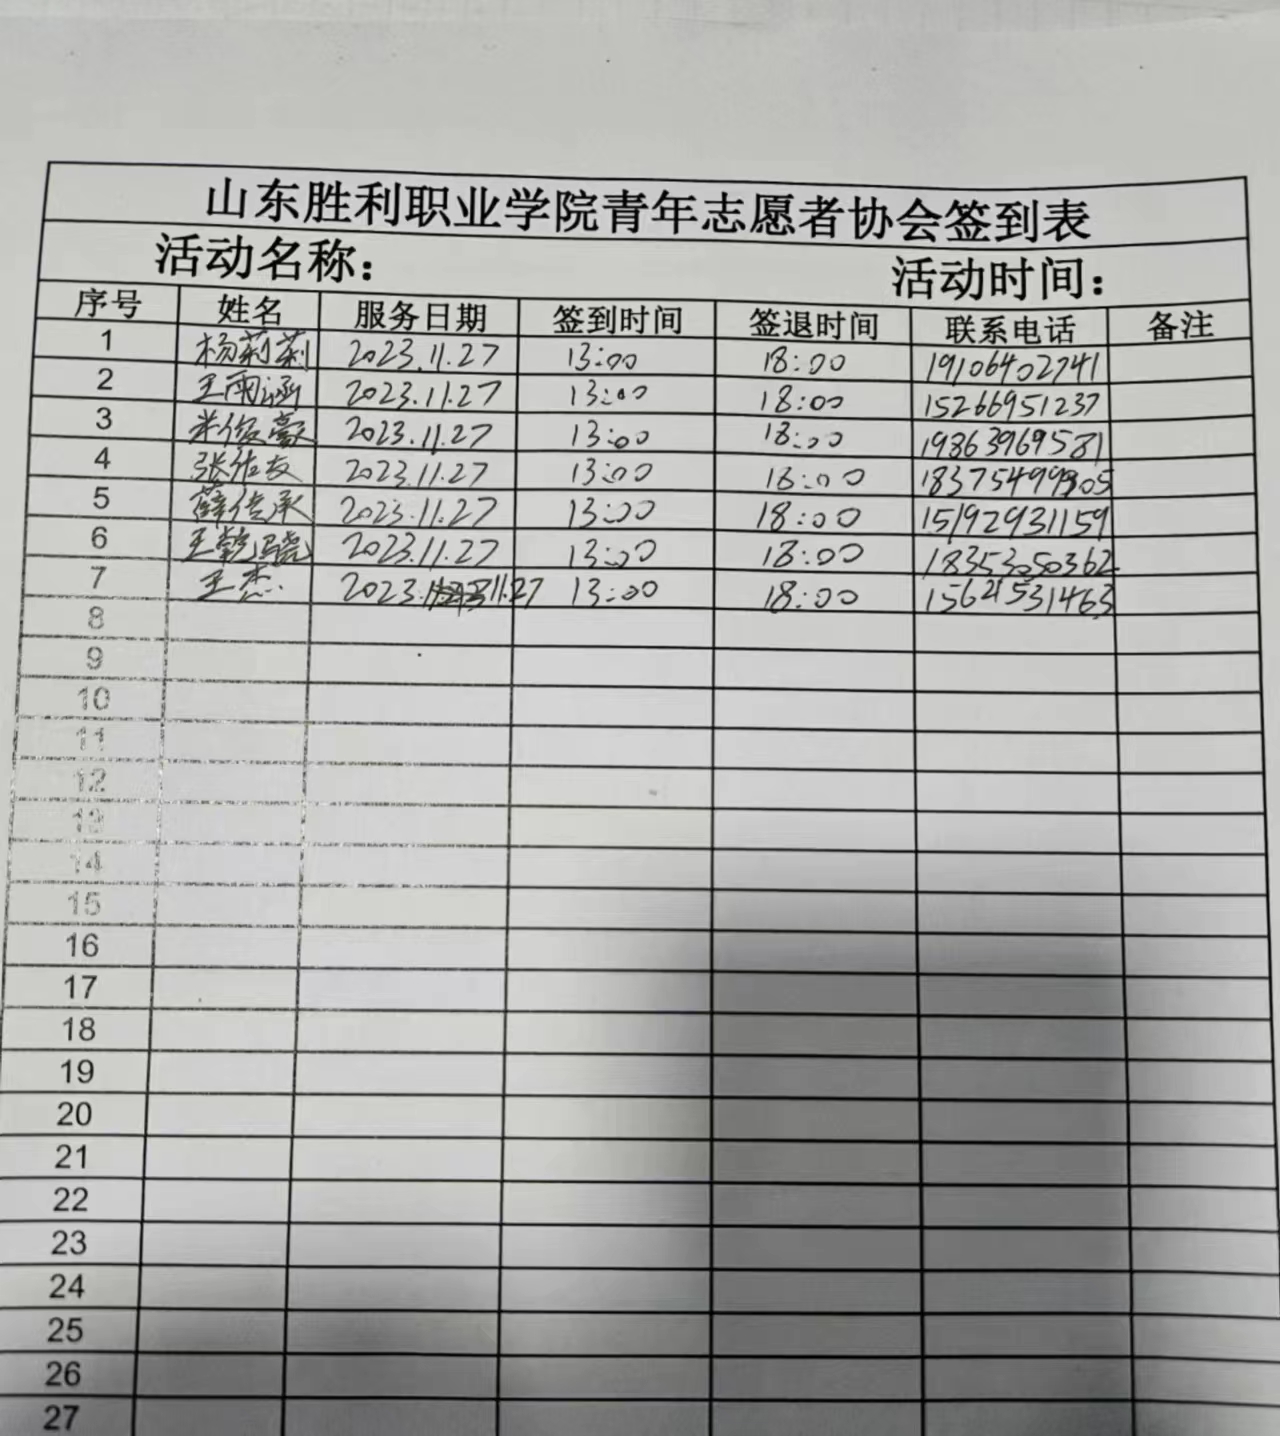 山东胜利职业学院青年志愿者协会签到表
活动名称： 活动时间：
序号 姓名 服务日期 签到时间 签退时间 联系电话 备注
1 杨莉莉 2023.11.27 13:00 18:00 19106402741
2 王雨涵 2023.11.27 13:00 18:00 15266951237
3 米俊豪 2023.11.27 13:00 18:00 19863969581
4 张佐友 2023.11.27 13:00 18:00
5 薛传承 2023.11.27 13:00 18:00 15192931159
6 2023.11.27 13:00 18:00 18353050362
7 王杰 2023.11.27 13:00 18:00 15621531463
8
9
10
11
12
13
14
15
16
17
18
19
20
21
22
23
24
25
26
27